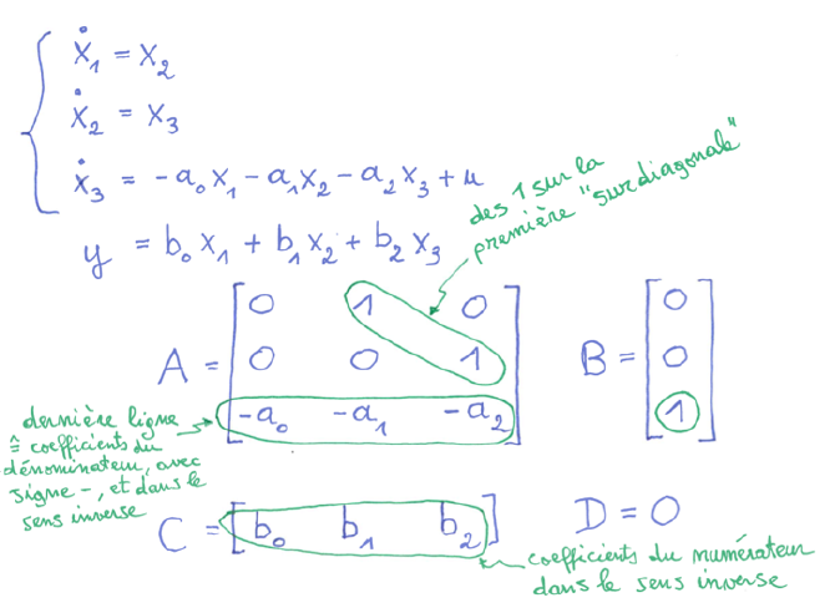 ẋ₁ = x₂
ẋ₂ = x₃
ẋ₃ = -a₀x₁ - a₁x₂ - a₂x₃ + u
y = b₀x₁ + b₁x₂ + b₂x₃
des 1 sur la
première "surdiagonale"
A = [0 1 0
0 0 1
-a₀ -a₁ -a₂]
B = [0
0
1]
dernière ligne
≙ coefficients du
dénominateur, avec
signe -, et dans le
sens inverse
C = [b₀ b₁ b₂]
D = 0
coefficients du numérateur
dans le sens inverse